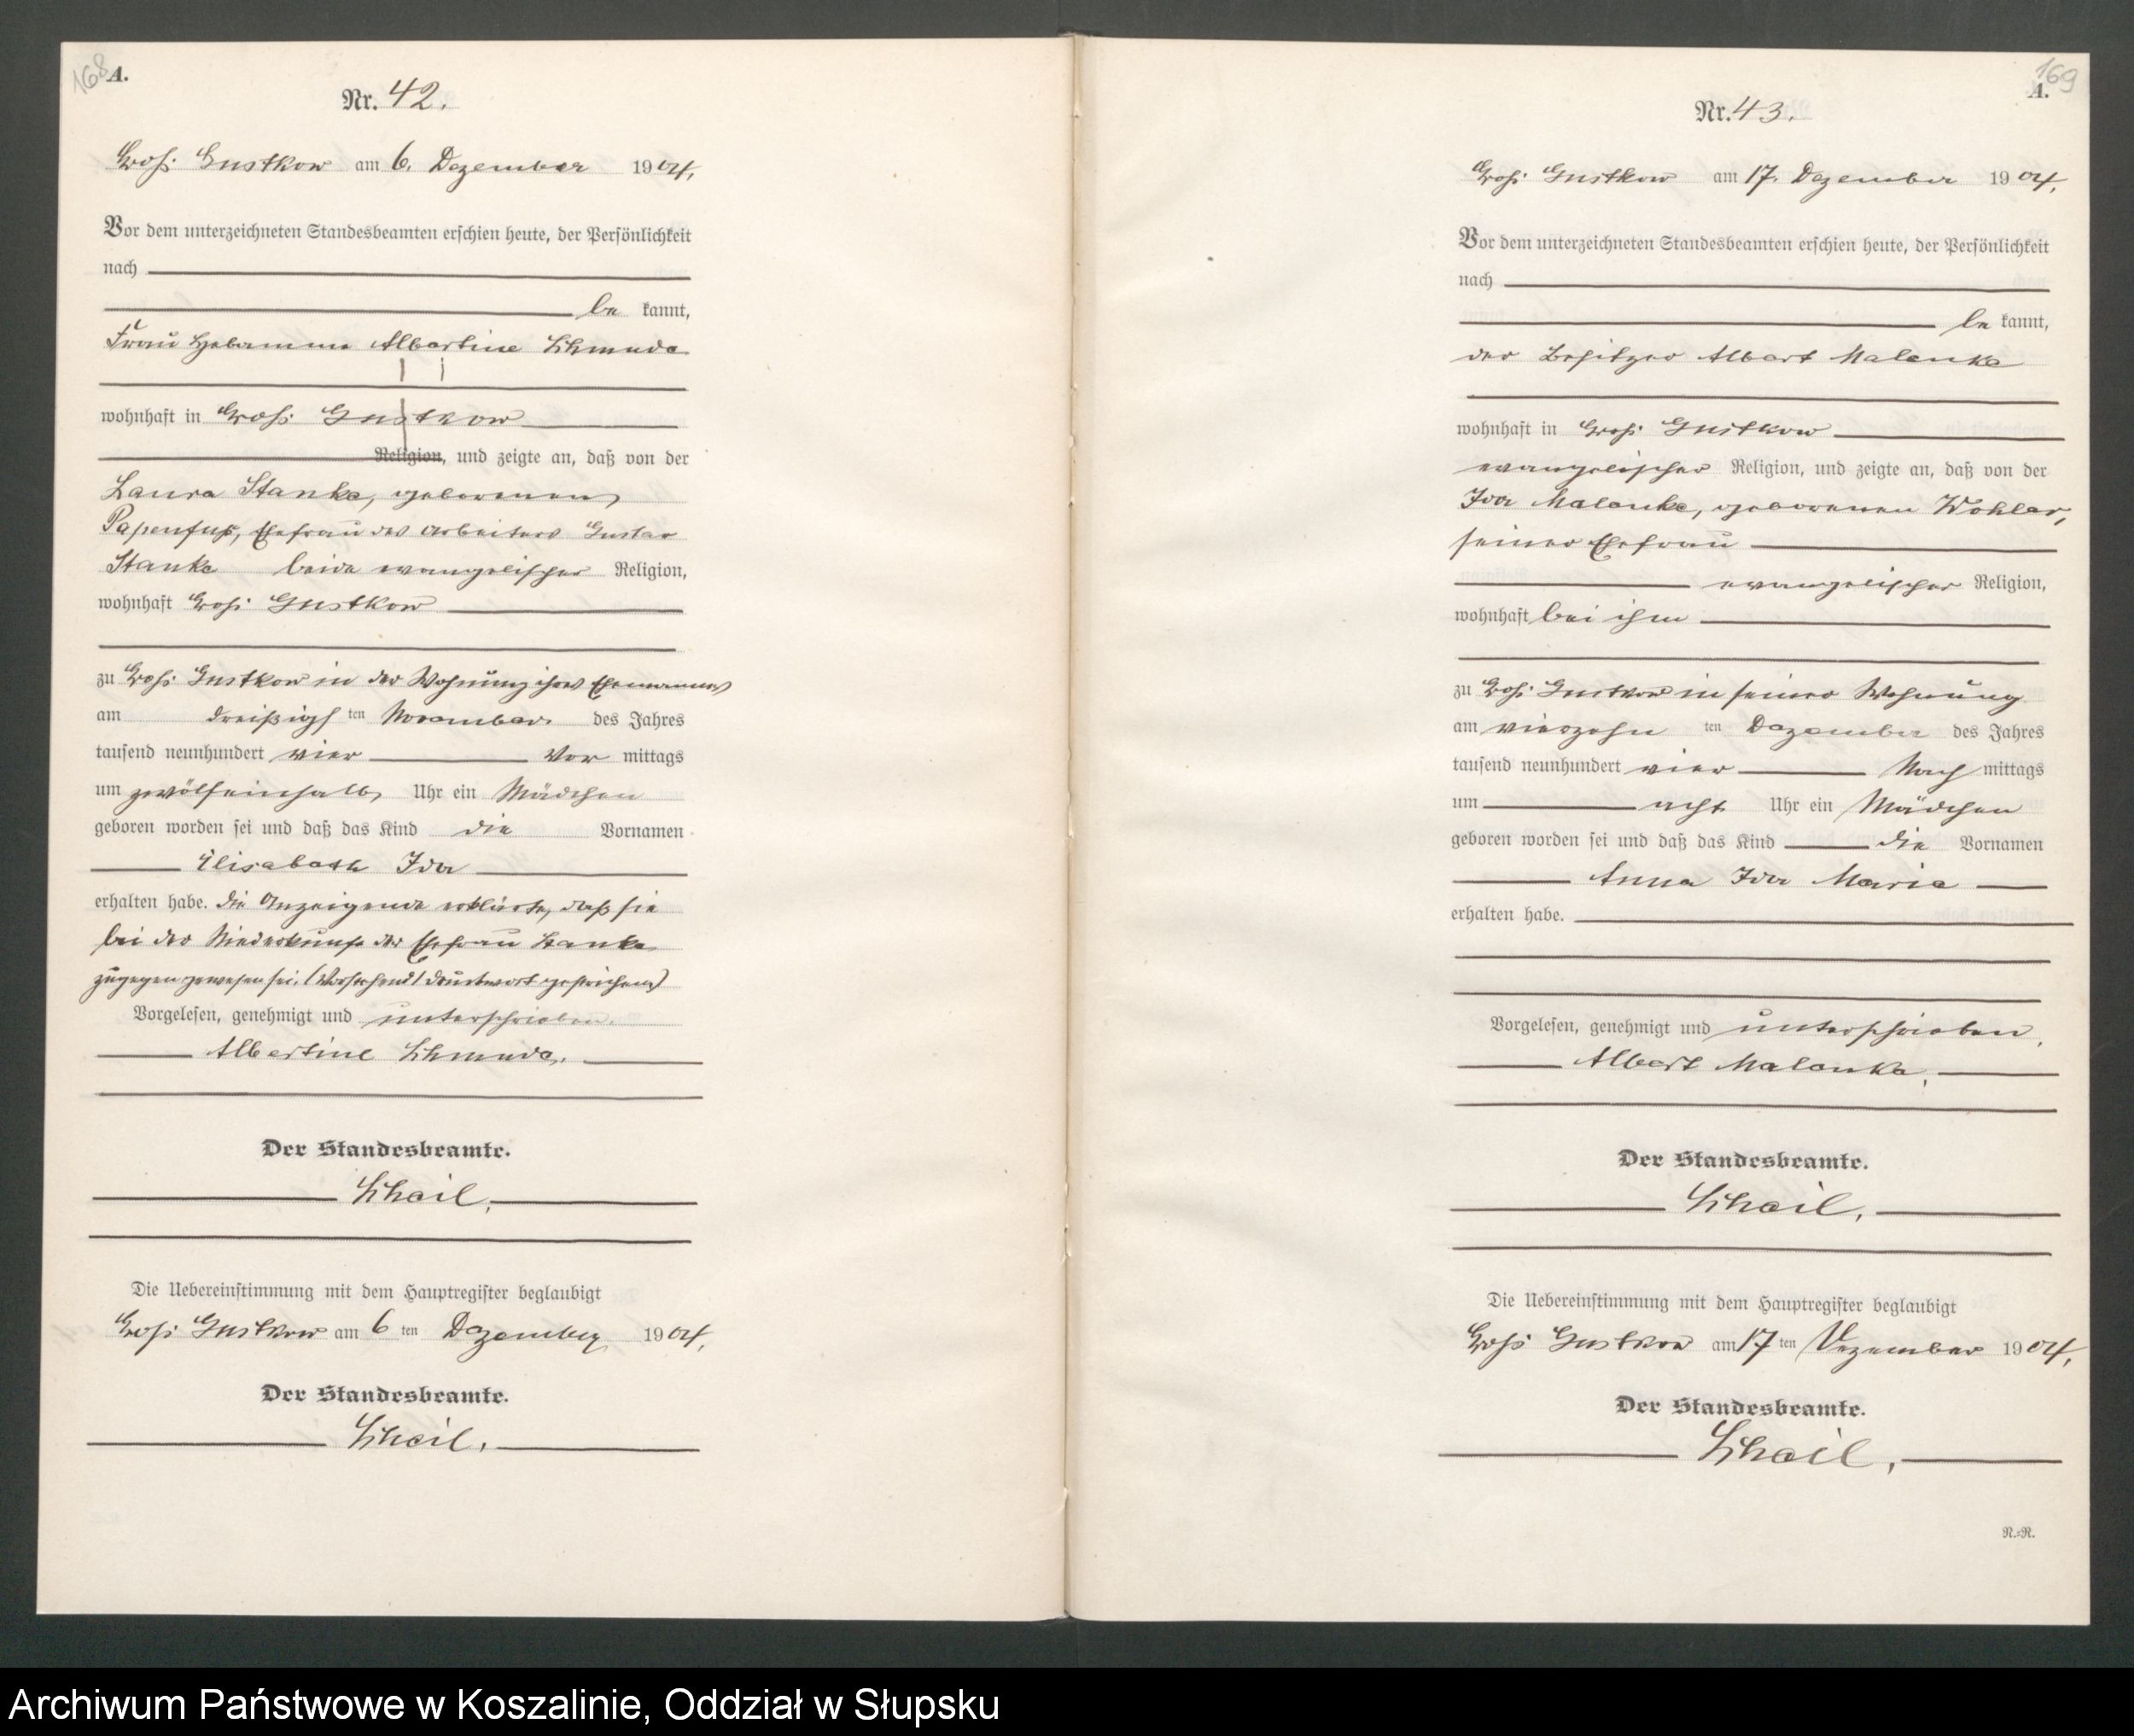 168
A.
Nr. 42.
Groß Gustkow am 6. Dezember 1904.
Vor dem unterzeichneten Standesbeamten erschien heute, der Persönlichkeit
nach
be kannt,
Frau Hebamme Albertine Schmude
wohnhaft in Groß Gustkow
Religion, und zeigte an, daß von der
Laura Stanke, geborenen
Papenfuß, Ehefrau des Arbeiters Gustav
Stanke beide evangelischer Religion,
wohnhaft Groß Gustkow
zu Groß Gustkow in der Wohnung ihres Ehemannes
am dreißigs ten November des Jahres
tausend neunhundert vier Vor mittags
um zwölfeinhalb Uhr ein Mädchen
geboren worden sei und daß das Kind die Vornamen
Elisabeth Ida
erhalten habe. Die Anzeigende erklärte, daß sie
bei der Niederkunft der Ehefrau Stanke
zugegen gewesen sei. (Vorstehend 1 Druckwort gestrichen)
Vorgelesen, genehmigt und unterschrieben.
Albertine Schmude.
Der Standesbeamte.
Scheil.
Die Uebereinstimmung mit dem Hauptregister beglaubigt
Groß Gustkow am 6 ten Dezember 1904.
Der Standesbeamte.
Scheil.
169
A.
Nr. 43.
Groß Gustkow am 17. Dezember 1904.
Vor dem unterzeichneten Standesbeamten erschien heute, der Persönlichkeit
nach
be kannt,
der Besitzer Albert Malenke
wohnhaft in Groß Gustkow
evangelischer Religion, und zeigte an, daß von der
Ida Malenke, geborenen Wohler,
seiner Ehefrau
evangelischer Religion,
wohnhaft bei ihm
zu Groß Gustkow in seiner Wohnung
am vierzehn ten Dezember des Jahres
tausend neunhundert vier Nach mittags
um acht Uhr ein Mädchen
geboren worden sei und daß das Kind die Vornamen
Anna Ida Marie
erhalten habe.
Vorgelesen, genehmigt und unterschrieben.
Albert Malenke.
Der Standesbeamte.
Scheil.
Die Uebereinstimmung mit dem Hauptregister beglaubigt
Groß Gustkow am 17 ten Dezember 1904.
Der Standesbeamte.
Scheil.
N.=R.
Archiwum Państwowe w Koszalinie, Oddział w Słupsku